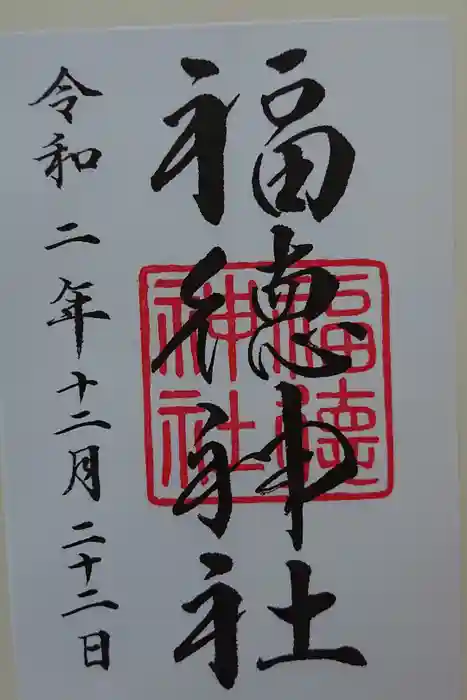 福徳神社
福徳
神社
令和二年十二月二十二日